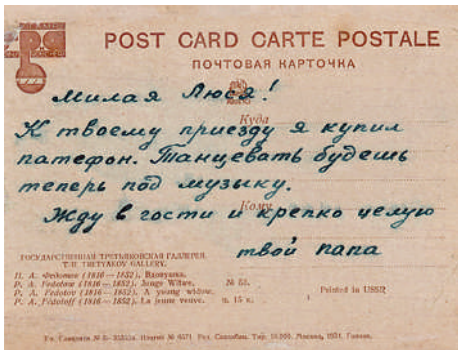 POST CARD CARTE POSTALE
ПОЧТОВАЯ КАРТОЧКА
Милая Люся!
Куда
К твоему приезду я купил
патефон. Танцевать будешь
теперь под музыку.
Кому
Жду в гости и крепко целую
твой папа
ГОСУДАРСТВЕННАЯ ТРЕТЬЯКОВСКАЯ ГАЛЛЕРЕЯ.
TRETYAKOV GALLERY.
П. А. Федотов (1816—1852). Вдовушка.
P. A. Fedotow (1816—1852). Junge Witwe.
P. A. Fedotov (1816—1852). A young widow.
P. A. Fedotoff (1816—1852). La jeune veuve.
№ 53.
ц. 15 к.
Printed in USSR
Москва, 1931.